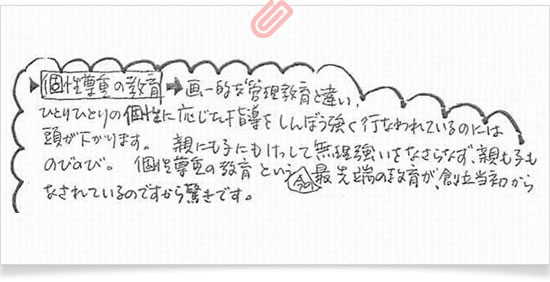 ▶個性尊重の教育➡画一的な管理教育と違い、
ひとりひとりの個性に応じた指導をしんぼう強く行なわれているのには
頭が下がります。 親にも子にもけっして無理強いをなさらなず、親も子も
のびのび。 個性尊重の教育という今の最先端の教育が、創立当初から
なされているのですから驚きです。